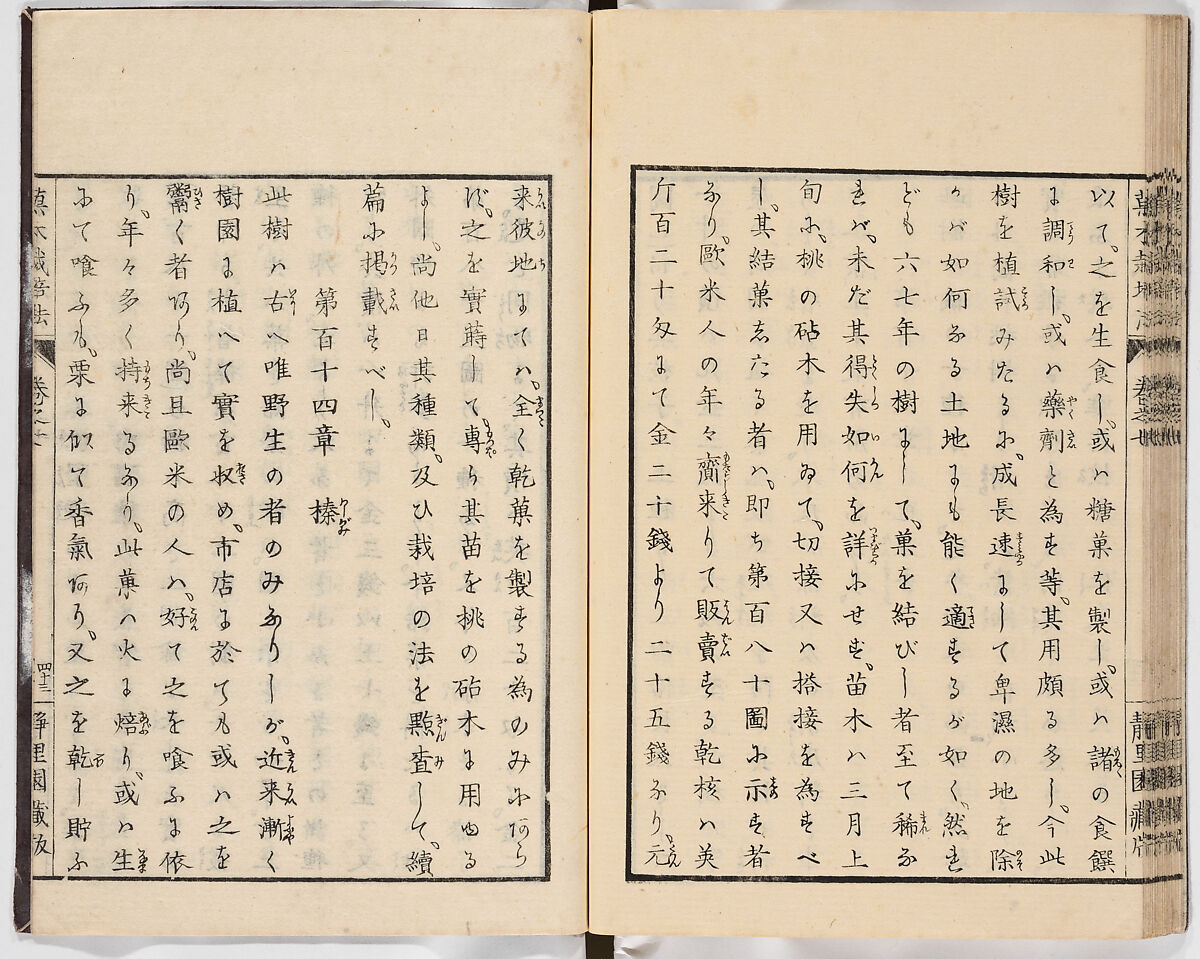 以て、之を生食し、或ハ糖菓を製し、或ハ諸の食饌
に調和し、或ハ藥劑と為す等、其用頗る多し、今此
樹を植試みたるに、成長速にして卑濕の地を除
けバ如何なる土地にも能く適するが如く、然れ
ども六七年の樹にして、菓を結びし者至て稀な
れバ、未だ其得失如何を詳にせず、苗木ハ三月上
旬に、桃の砧木を用ゐて、切接又ハ搭接を為すべ
し、其結菓したる者ハ、即ち第百八十圖に示す者
なり、歐米人の年々齎来りて販賣する乾核ハ英
斤百二十匁にて金二十錢より二十五錢なり、元
来彼地にてハ、全く乾菓を製する為のみにあら
ず、之を實蒔して、專ら其苗を桃の砧木に用ゆる
よし、尚他日其種類、及ひ栽培の法を點査して、續
篇に掲載すべし、
第百十四章 榛
此樹ハ古へ唯野生の者のみなりしが、近来漸く
樹園に植へて實を収め、市店に於ても或ハ之を
鬻く者あり、尚且歐米の人ハ、好て之を喰ふに依
り、年々多く持来るなり、此菓ハ火に焙り、或ハ生
にて喰ふも、栗に似て香氣あり、又之を乾し貯ふ
菓木栽培法 卷之 四十三 靜里園藏版